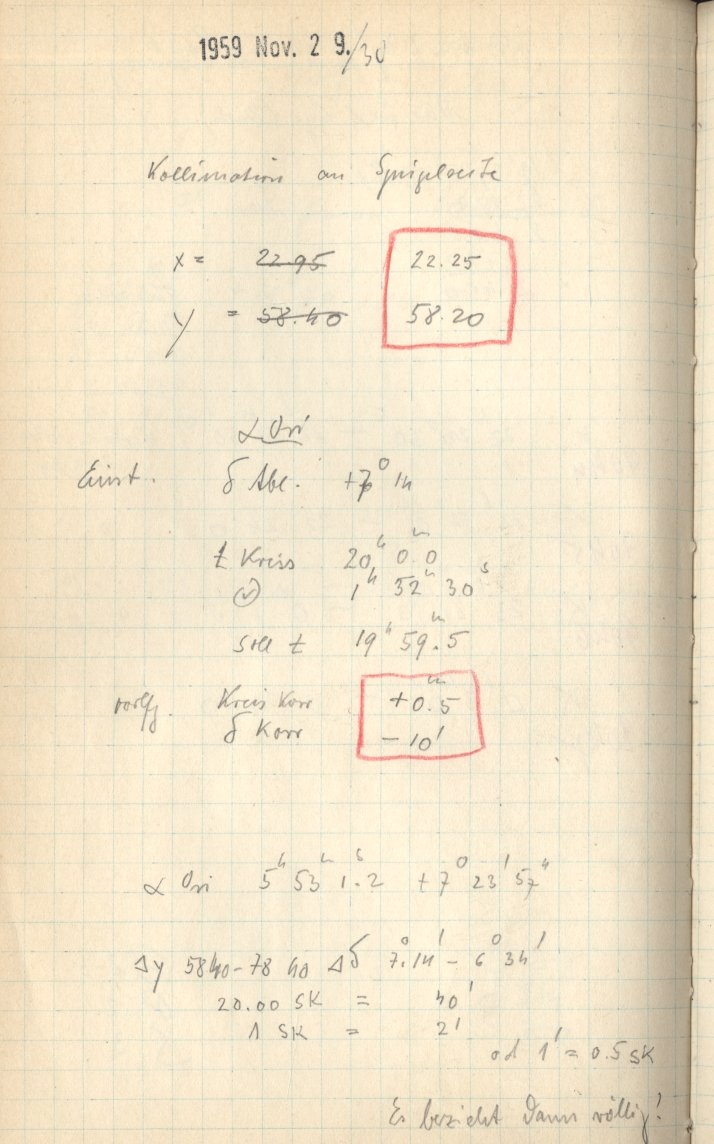 1959 Nov. 29./30
Kollimation an Spiegelseite
x = 22.95 22.25
y = 58.40 58.20
α Ori
Einst. δ Abl. +7° 14
t Kreis 20h 0m.0
1h 52m 30s
Soll t 19h 59m.5
vorlfg. Kreis Korr +0m.5
δ Korr − 10'
α Ori 5h 53m 1s.2 +7° 23' 57"
Δy 5840-7840 Δδ 7°.14' - 6° 34'
20.00 SK = 40'
1 SK = 2'
od 1' = 0.5 SK
dann völlig!